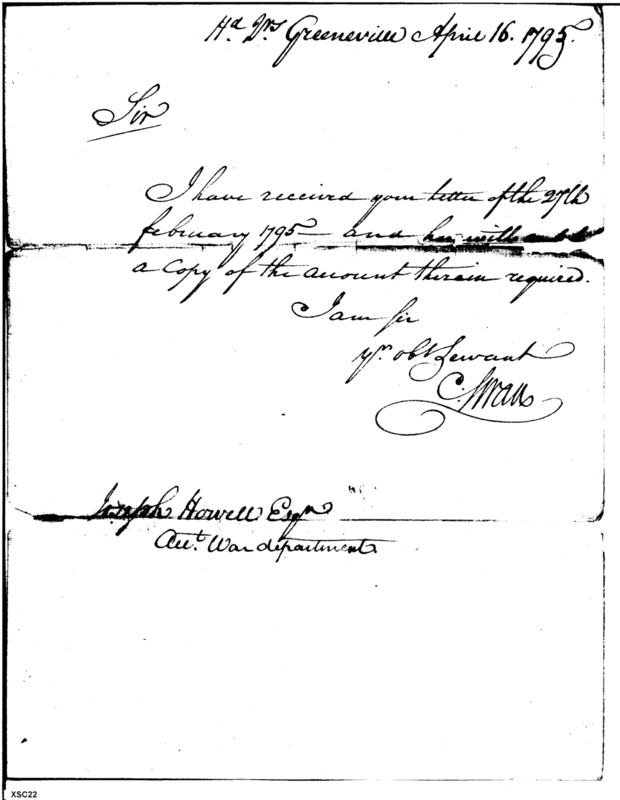 Hd Qrs Greeneville April 16. 1795.
Sir
I have received your letter of the 27th
february 1795 — and herewith
a Copy of the account therein required.
I am Sir
yr. obt Servant
C. Swan
Joseph Howell Esqr
Acct. War department
XSC22